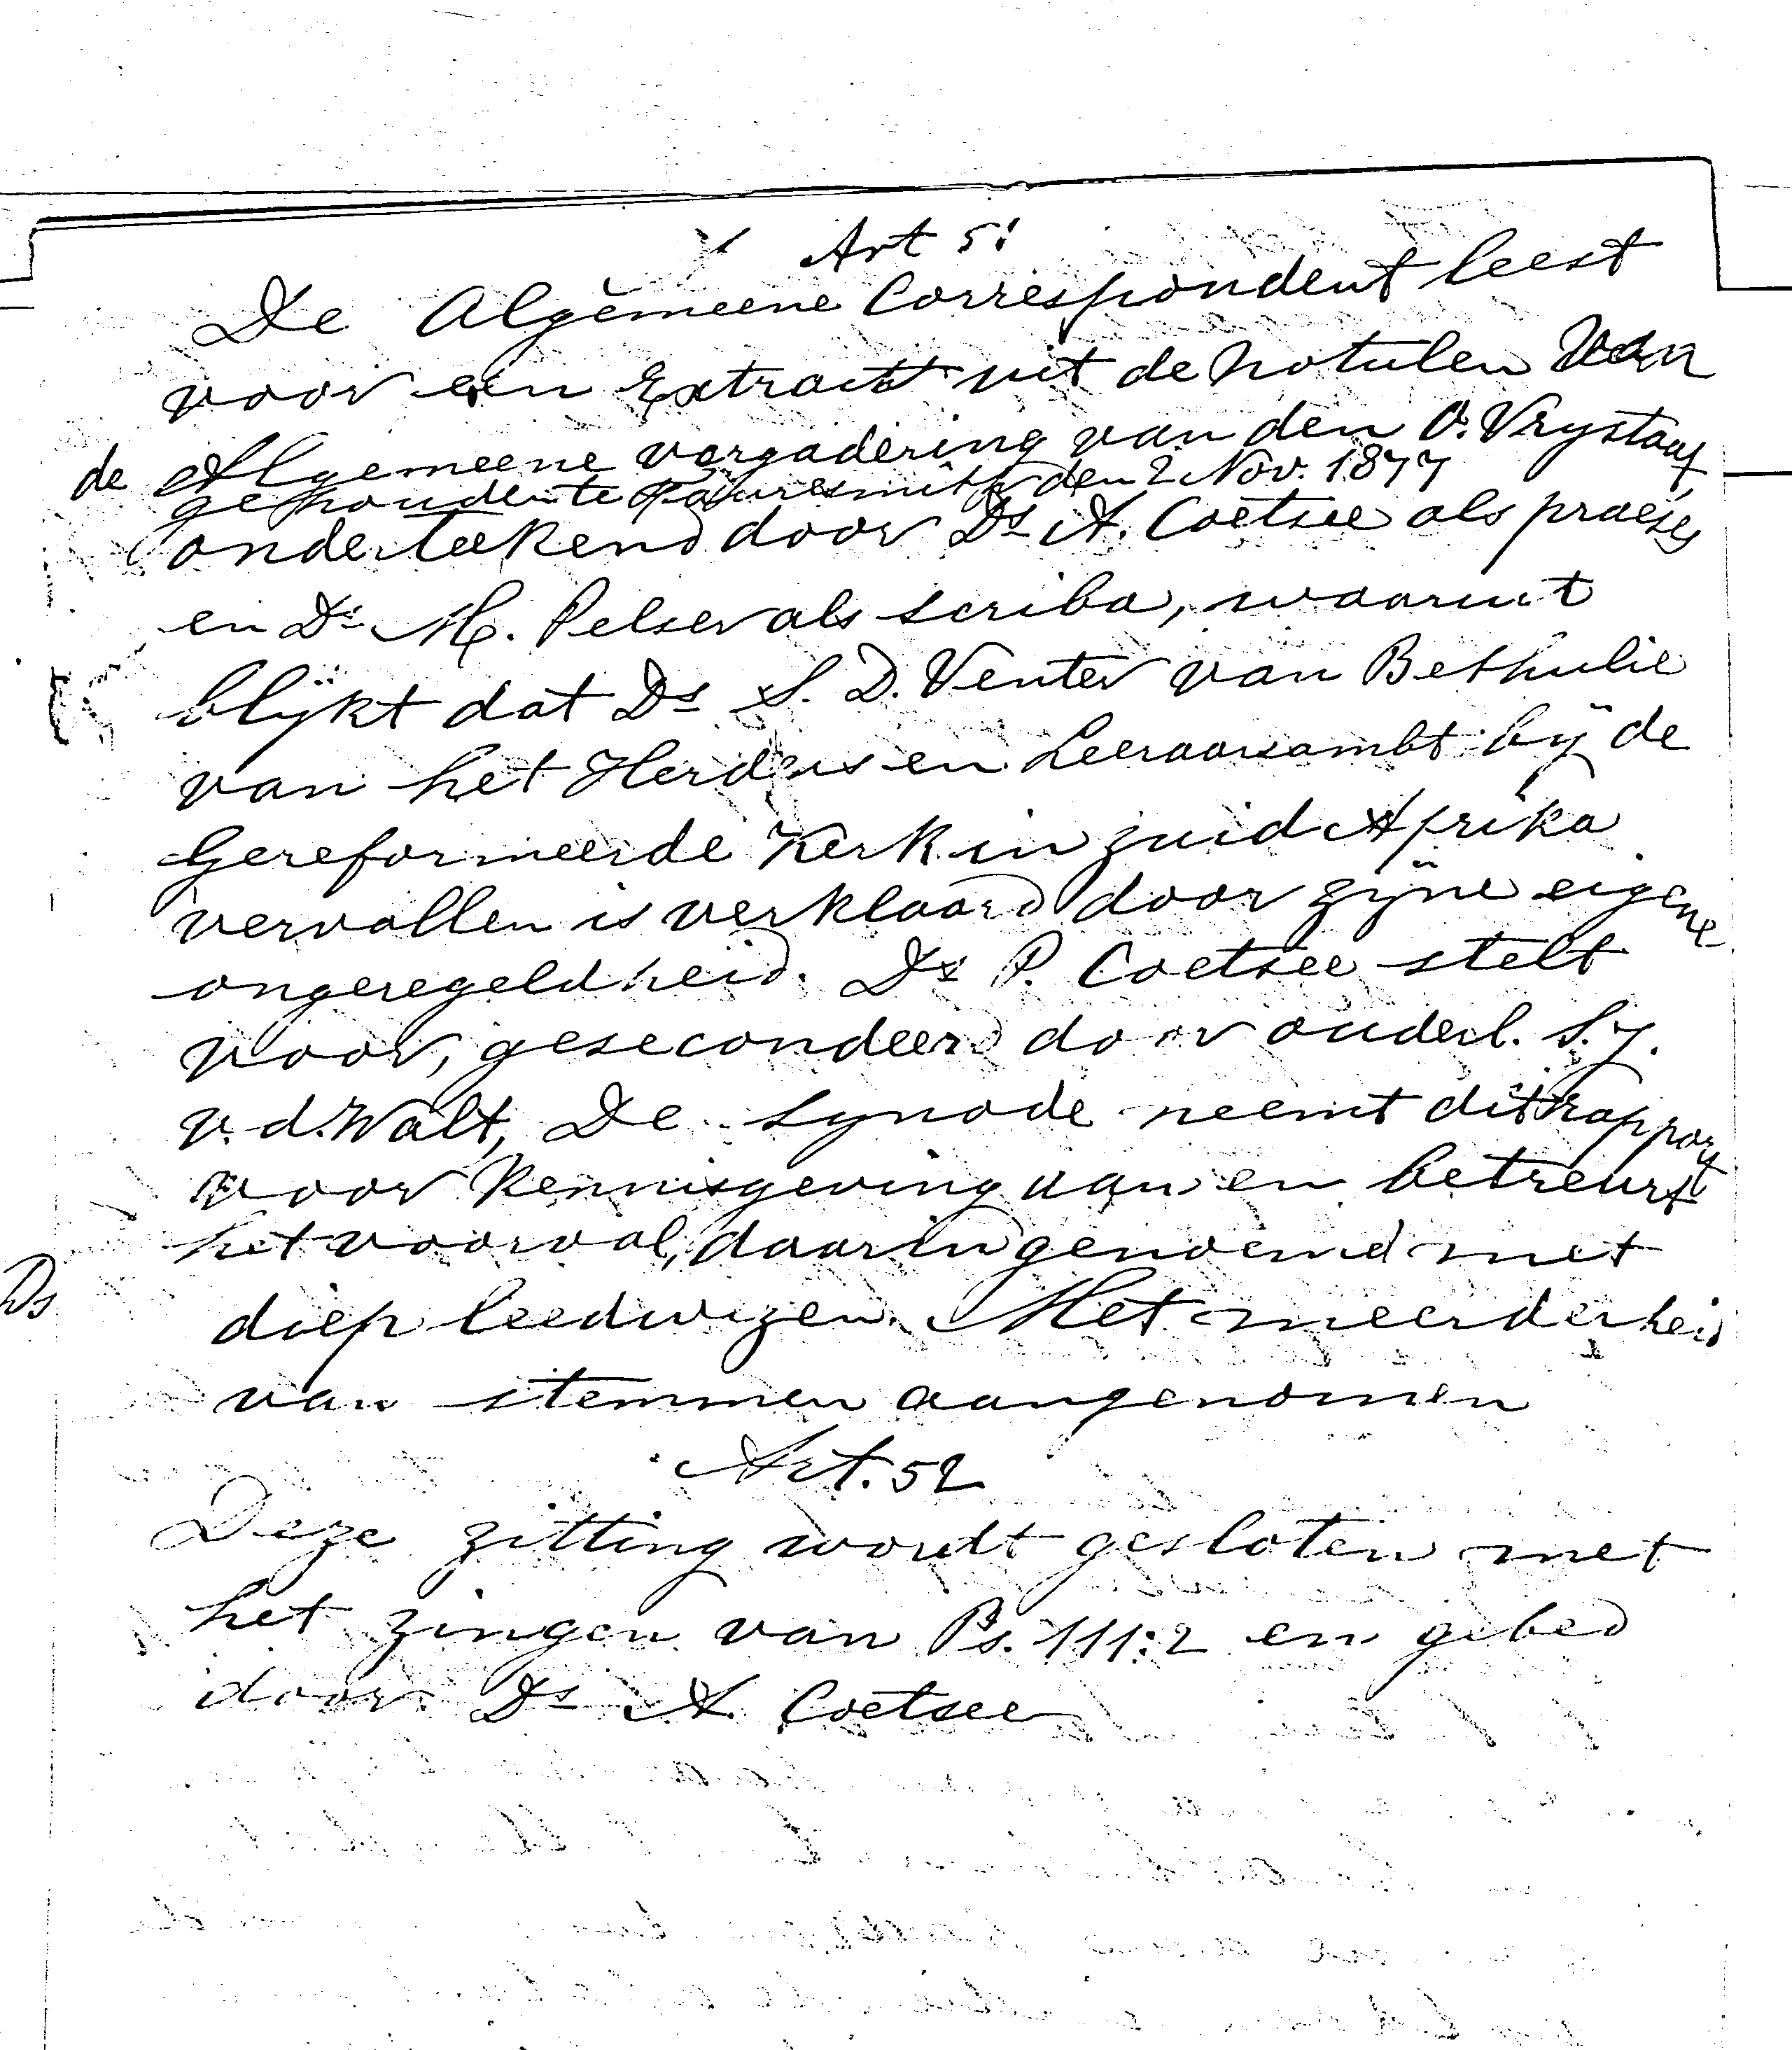 Art 51
De Algemeene Correspondent leest
voor een Extract uit de Notulen van
de Algemeene vergadering van den O. Vrystaat
gehouden te Fauresmith den 2 Nov. 1877
onderteekend door Ds A. Coetsee als praeses
en Ds M. Pelser als scriba, waaruit
blijkt dat Ds S. D. Venter van Bethulie
van het Herders en Leeraarsambt bij de
Gereformeerde Kerk in zuid Afrika
vervallen is verklaard door zijne eigene
ongeregeldheid. Ds P. Coetsee stelt
voor, gesecondeerd door ouderl. S. J.
v. d. Walt, De synode neemt dit rapport
voor kennisgeving aan en betreurt
het voorval, daarin genoemd met
Ds
diep leedwezen. Met meerderheid
van stemmen aangenomen
Art. 52
Deze zitting wordt gesloten met
het zingen van Ps. 111:2 en gebed
door Ds A. Coetsee